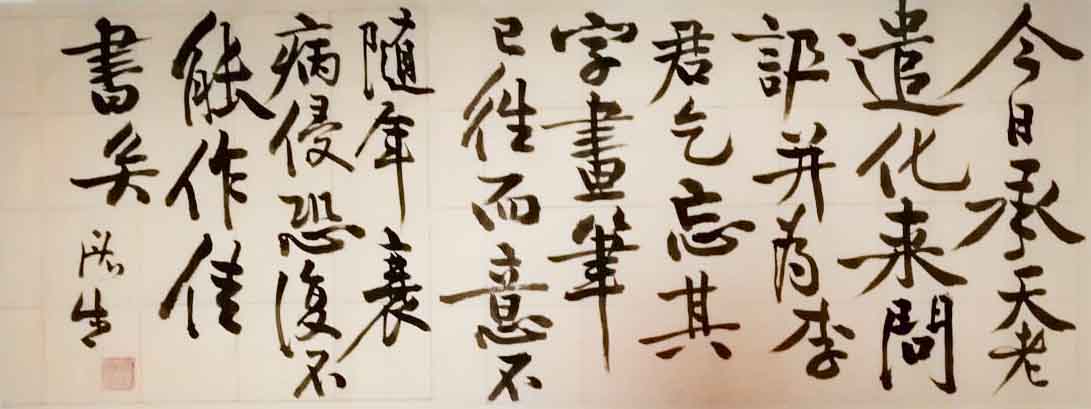 今日承天老
遣化来問
訊并為李
君乞忘其
字畫筆
已往而意不
隨年衰
病侵恐復不
能作佳
書矣
生